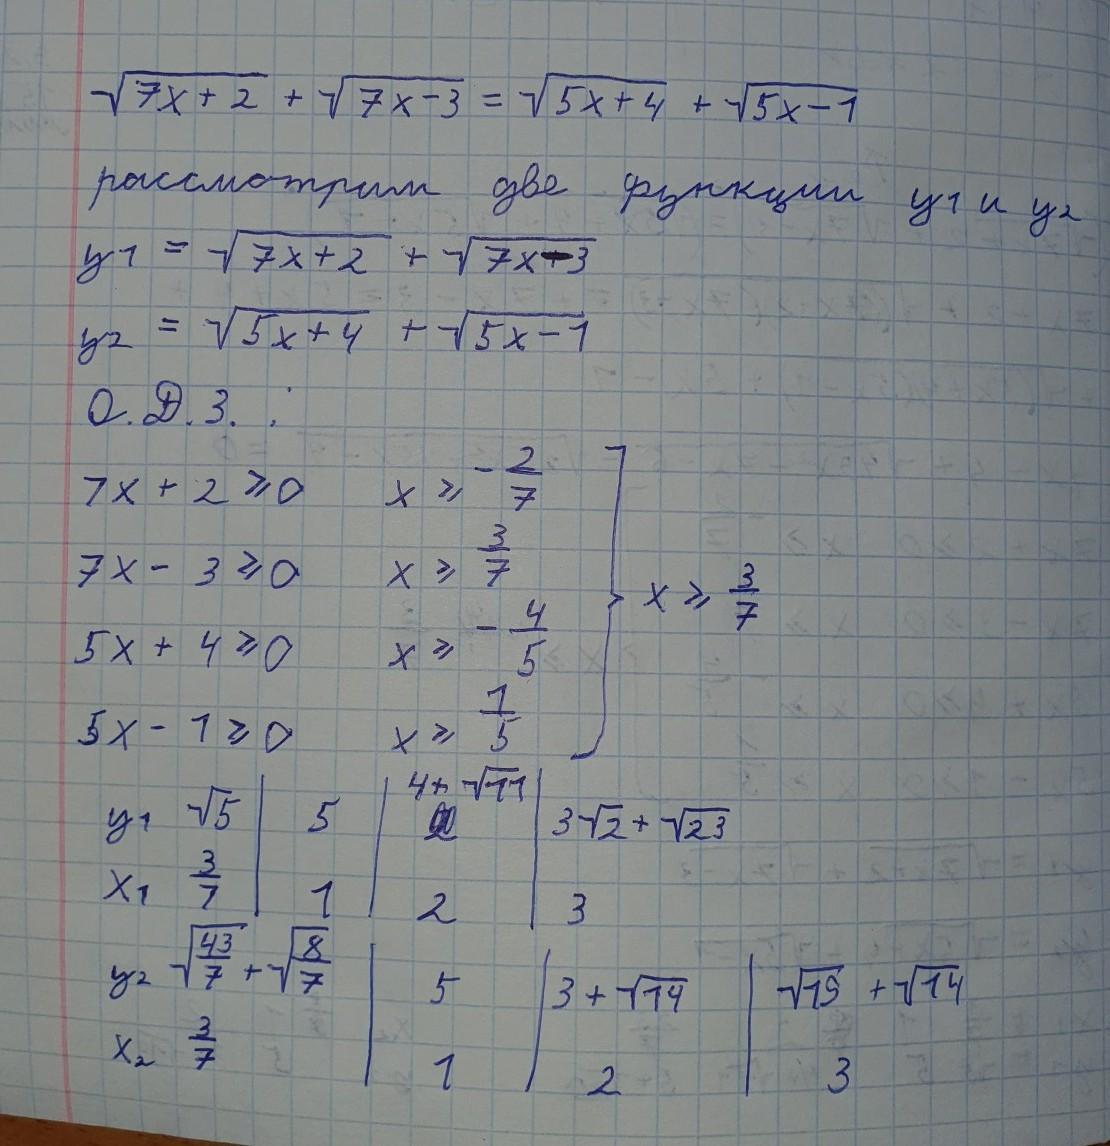 √(7x+2) + √(7x-3) = √(5x+4) + √(5x-1)
рассмотрим две функции y1 и y2
y1 = √(7x+2) + √(7x-3)
y2 = √(5x+4) + √(5x-1)
О.Д.З. :
7x + 2 ⩾ 0 x ⩾ -2/7
7x - 3 ⩾ 0 x ⩾ 3/7
x ⩾ 3/7
5x + 4 ⩾ 0 x ⩾ -4/5
5x - 1 ⩾ 0 x ⩾ 1/5
y1 √5 | 5 | 4+√11 | 3√2 + √23
x1 3/7 | 1 | 2 | 3
y2 √(43/7) + √(8/7) | 5 | 3 + √14 | √19 + √14
x2 3/7 | 1 | 2 | 3